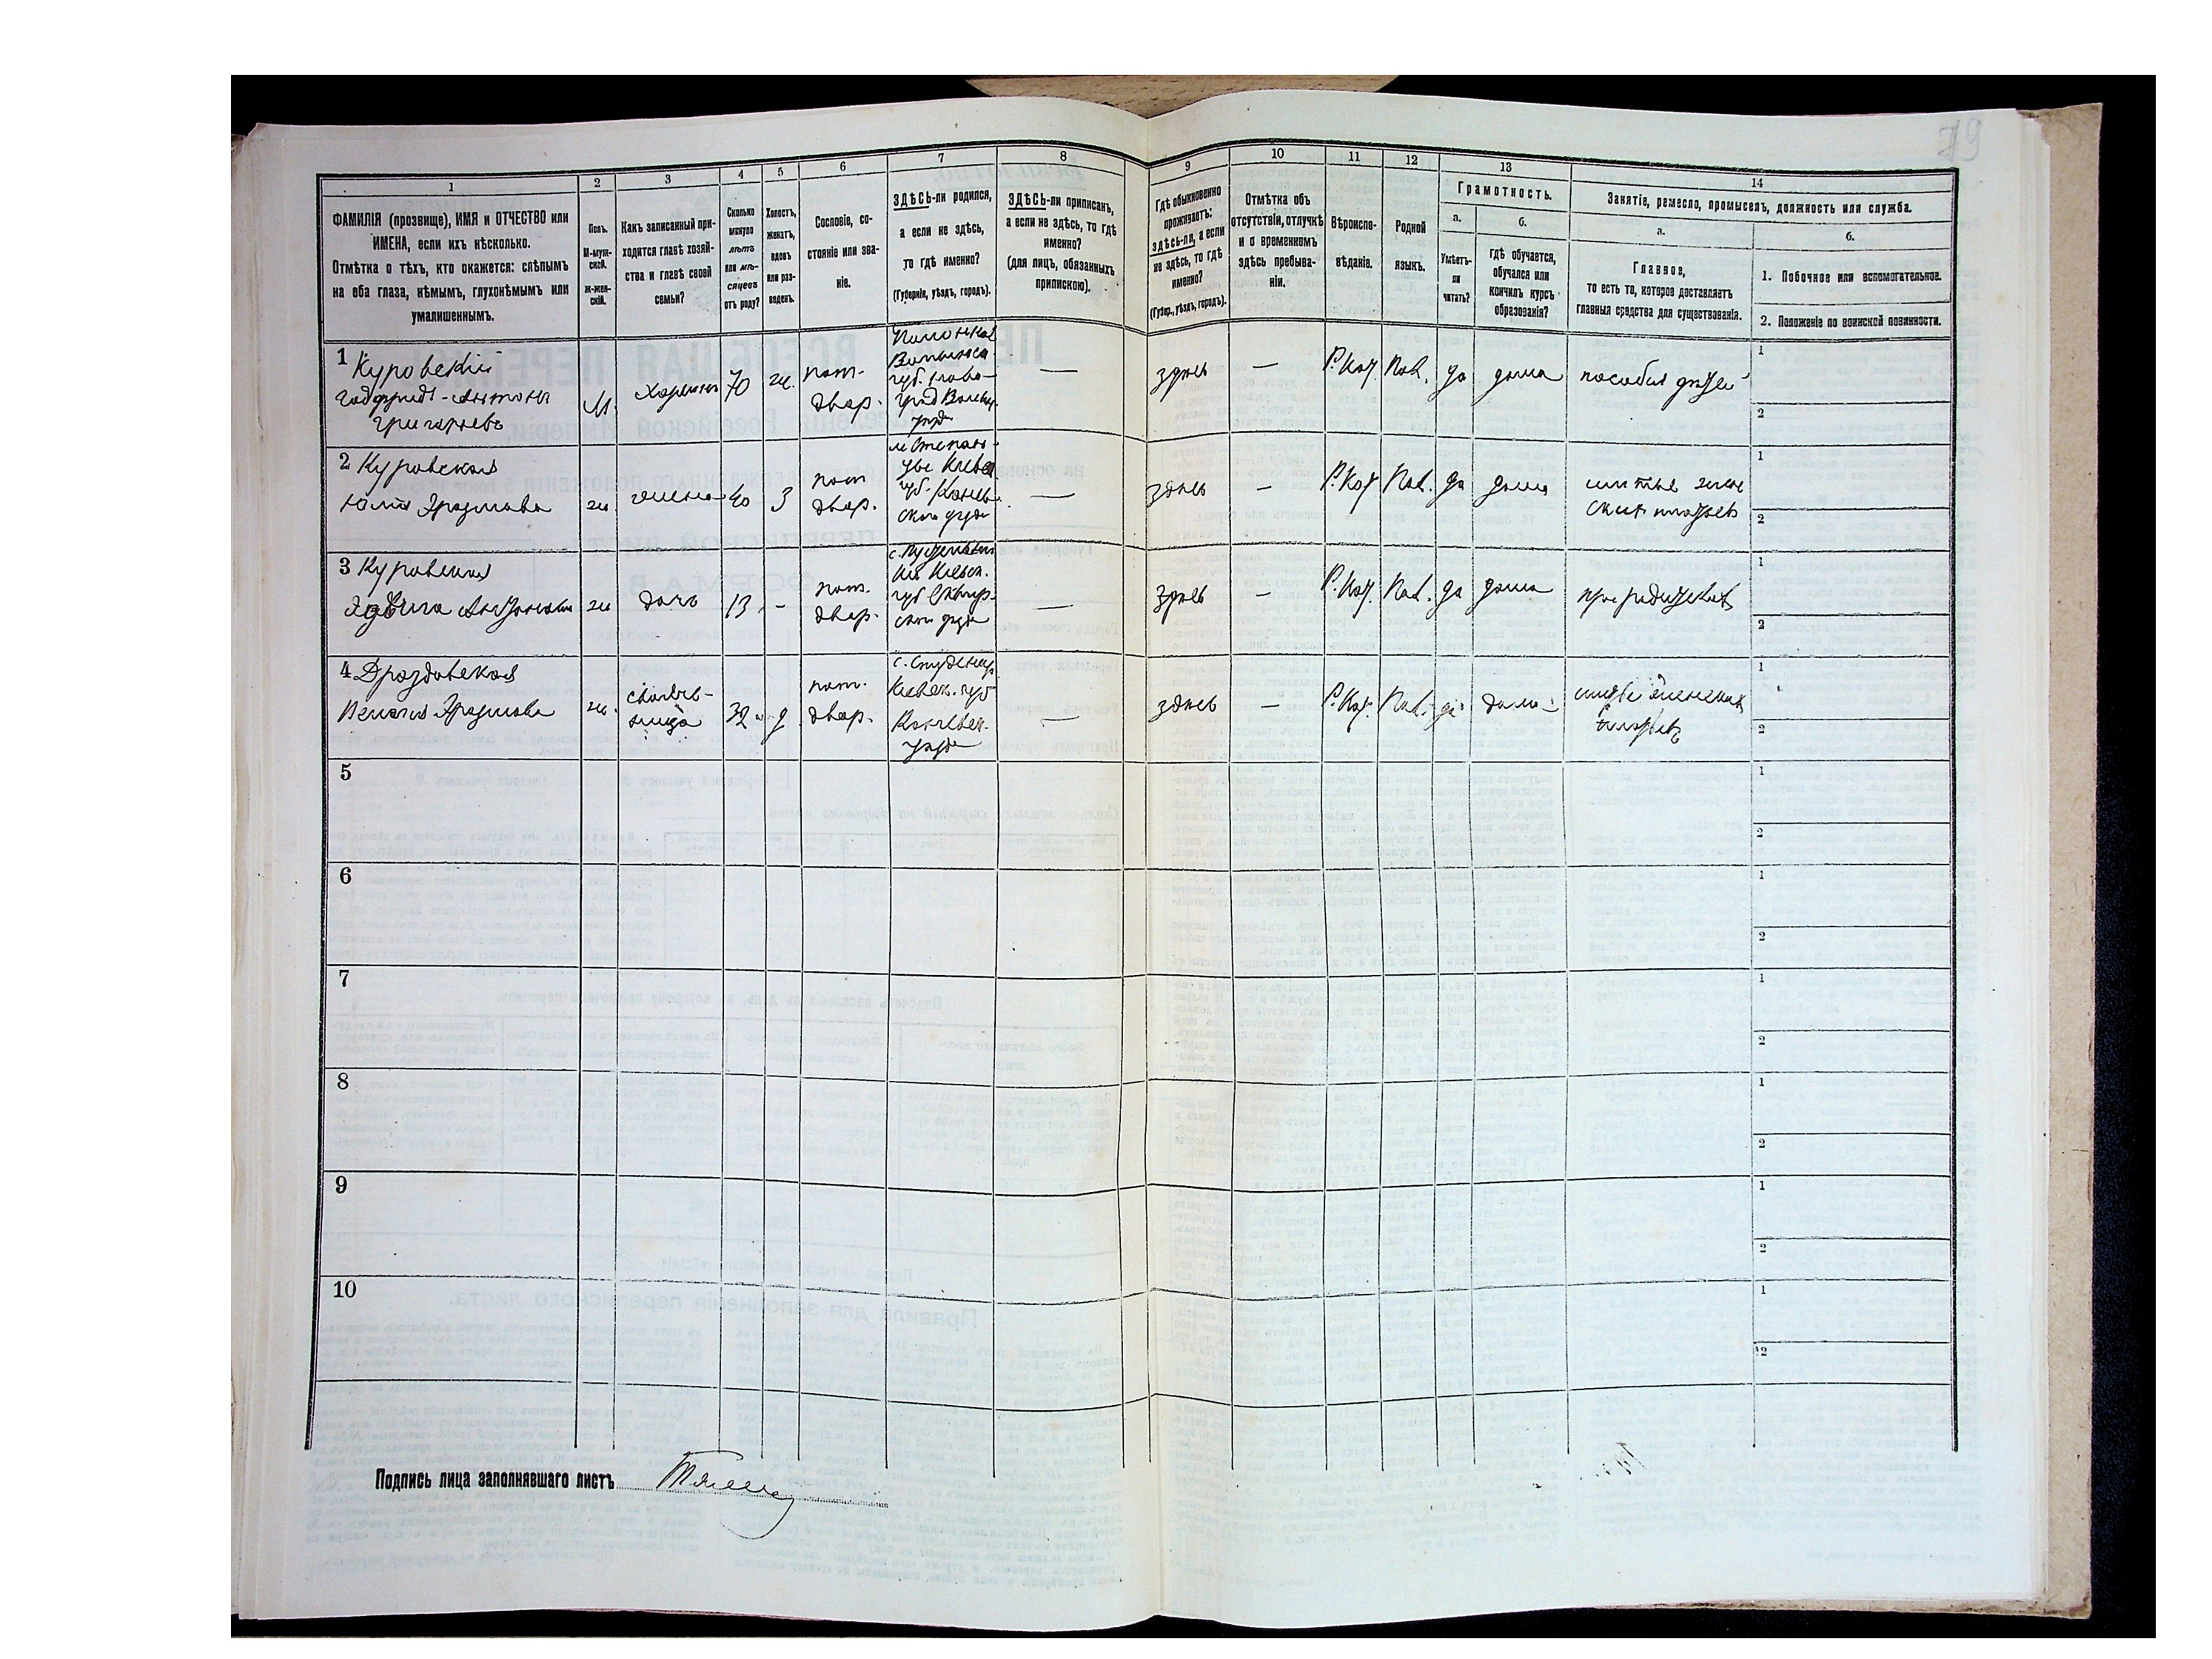 79
1 2 3 4 5 6 7 8 9 10 11 12 13 14
ФАМИЛІЯ (прозвище), ИМЯ и ОТЧЕСТВО или
ИМЕНА, если ихъ нѣсколько.
Отмѣтка о тѣхъ, кто окажется: слѣпымъ
на оба глаза, нѣмымъ, глухонѣмымъ или
умалишеннымъ.
Полъ.
М-муж-
ской.
Ж-жен-
скій.
Какъ записанный при-
ходится главѣ хозяй-
ства и главѣ своей
семьи?
Сколько
минуло
лѣтъ
или мѣ-
сяцевъ
отъ роду?
Холостъ,
женатъ,
вдовъ
или раз-
веденъ.
Сословіе, со-
стояніе или зва-
ніе.
ЗДѢСЬ-ли родился,
а если не здѣсь,
то гдѣ именно?
(Губернія, уѣздъ, городъ).
ЗДѢСЬ-ли приписанъ,
а если не здѣсь, то гдѣ
именно?
(для лицъ, обязанныхъ
припискою).
Гдѣ обыкновенно
проживаетъ:
здѣсь-ли, а если
не здѣсь, то гдѣ
именно?
(Губер., уѣздъ, городъ).
Отмѣтка объ
отсутствіи, отлучкѣ
и о временномъ
здѣсь пребыва-
ніи.
Вѣроиспо-
вѣданіе.
Родной
языкъ.
Грамотность.
а.
Умѣетъ-
ли
читать?
б.
гдѣ обучается,
обучался или
кончилъ курсъ
образованія?
Занятіе, ремесло, промыселъ, должность или служба.
а.
Главное,
то есть то, которое доставляетъ
главныя средства для существованія.
б.
1. Побочное или вспомогательное.
2. Положеніе по воинской повинности.
1 Куровскій
Годфридъ-Антонъ
Григорьевъ
М.
Хозяинъ
70
же.
пот.
двор.
Волынска
губ. Ново-
град Волын.
уезда
—
здѣсь
—
Р. Кат.
Пол.
да
дома
пособия детей
1
2
2 Куровская
Юлія Эразмова
ж
жена
40
З
пот
двор.
Киевск
губ. Канев-
скаго уезда
—
здѣсь
—
Р. Кат
Пол.
да
дома
шитье жен
ских платьев
1
2
3 Куровская
Ядвига Антонова
ж
дочь
13
-
пот.
двор.
Киевск.
губ Сквир-
скаго уезда
—
здѣсь
—
Р. Кат.
Пол.
да
дома
при родителях
1
2
4 Дроздовская
Эразмова
ж.
своя-
ченица
32
д
пот.
двор.
с. Студенец
Киевск. губ
Каневск.
уезда
—
здѣсь
—
Р. Кат.
Пол.
да
дома
шитье женских
платьев
1
2
5
1
2
6
1
2
7
1
2
8
1
2
9
1
2
10
1
2
Подпись лица заполнявшаго листъ